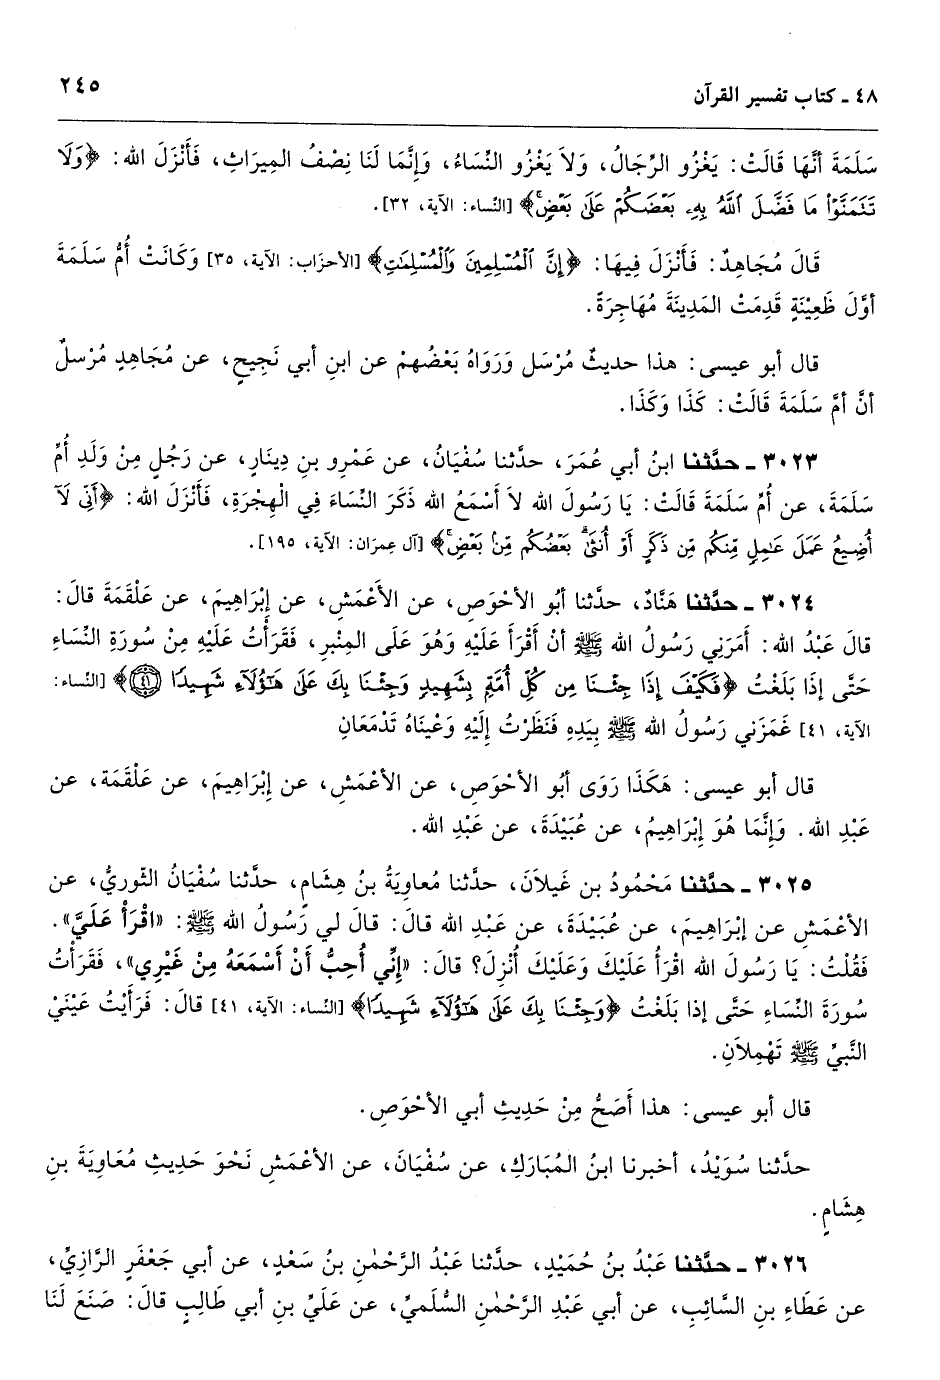 ٤٨ ـ كتاب تفسير القرآن
٢٤٥
سَلَمَةَ أنَّهَا قَالَتْ: يَغْزُو الرِّجَالُ، وَلاَ يَغْزُو النِّسَاءُ، وَإِنَّمَا لَنَا نِصْفُ المِيرَاثِ، فَأَنْزَلَ الله: ﴿وَلَا
تَتَمَنَّوْا مَا فَضَّلَ ٱللَّهُ بِهِۦ بَعْضَكُمْ عَلَىٰ بَعْضٍ﴾ [النِّساء: الآية، ٣٢].
قَالَ مُجَاهِدٌ: فَأَنْزَلَ فِيهَا: ﴿إِنَّ ٱلْمُسْلِمِينَ وَٱلْمُسْلِمَٰتِ﴾ [الأحزَاب: الآية، ٣٥] وَكَانَتْ أُمُّ سَلَمَةَ
أَوَّلَ ظَعِيْنَةٍ قَدِمَتْ المَدِينَةَ مُهَاجِرَةً.
قال أبو عيسى: هذا حديثٌ مُرْسَل وَرَوَاهُ بَعْضُهمْ عن ابنِ أبي نَجيحٍ، عن مُجَاهِدٍ مُرْسلٌ
أنَّ أمَّ سَلَمَةَ قَالَتْ: كَذَا وَكَذَا.
٣٠٢٣ ـ حدَّثنا ابنُ أبي عُمَرَ، حدَّثنا سُفْيَانُ، عن عَمْرِو بنِ دِينَارٍ، عن رَجُلٍ مِنْ وَلَدِ أُمِّ
سَلَمَةَ، عن أُمِّ سَلَمَةَ قَالَتْ: يا رَسُولَ الله لاَ أَسْمَعُ الله ذَكَرَ النِّسَاءَ فِي الْهِجْرَةِ، فَأَنْزَلَ الله: ﴿أَنِّى لَآ
أُضِيعُ عَمَلَ عَٰمِلٍ مِّنكُم مِّن ذَكَرٍ أَوْ أُنثَىٰ بَعْضُكُم مِّنۢ بَعْضٍ﴾ [آل عِمرَان: الآية، ١٩٥].
٣٠٢٤ ـ حدَّثنا هَنَّادٌ، حدَّثنا أبُو الأحْوَصِ، عن الأعْمَشِ، عن إِبْرَاهِيمَ، عن عَلْقَمَةَ قالَ:
قالَ عَبْدُ الله: أَمَرَنِي رَسُولُ الله ﷺ أنْ أقْرَأَ عَلَيْهِ وَهُوَ عَلَى المِنْبرِ، فَقَرَأْتُ عَلَيْهِ مِنْ سُورَةِ النِّسَاءِ
حَتَّى إذَا بَلَغْتُ ﴿فَكَيْفَ إِذَا جِئْنَا مِن كُلِّ أُمَّةٍۭ بِشَهِيدٍ وَجِئْنَا بِكَ عَلَىٰ هَٰٓؤُلَآءِ شَهِيدًا ٤١﴾ [النِّساء:
الآية، ٤١] غَمَزَني رَسُولُ الله ﷺ بِيَدِهِ فَنَظَرْتُ إِلَيْهِ وَعْيناهُ تَدْمَعَانِ
قال أبو عيسى: هَكَذَا رَوَى أبُو الأحْوَصِ، عن الأعْمَشِ، عن إِبْرَاهِيمَ، عن عَلْقَمَة، عن
عَبْدِ الله. وَإِنَّمَا هُوَ إِبْرَاهِيمُ، عن عُبَيْدَةَ، عن عَبْدِ الله.
٣٠٢٥ ـ حدَّثنا مَحْمُودُ بن غَيلاَنَ، حدَّثنا مُعاوِيَةُ بنُ هِشَامٍ، حدَّثنا سُفْيَانُ الثّوريُّ، عن
الأعْمَشِ عن إبْرَاهِيمَ، عن عُبَيْدَةَ، عن عَبْدِ الله قالَ: قالَ لي رَسُولُ الله ﷺ: «اقْرَأْ عَلَيَّ».
فَقُلْتُ: يَا رَسُولَ الله اقْرَأُ عَلَيْكَ وَعَلَيْكَ أُنْزِلَ؟ قالَ: «إنِّي أُحِبُّ أَنْ أَسْمَعَهُ مِنْ غَيْرِي»، فَقَرَأْتُ
سُورَةَ النِّسَاءِ حَتَّى إذا بَلَغْتُ ﴿وَجِئْنَا بِكَ عَلَىٰ هَٰٓؤُلَآءِ شَهِيدًا﴾ [النِّساء: الآية، ٤١] قالَ: فَرَأَيْتُ عَيْنَيْ
النَّبيِّ ﷺ تَهْمِلاَنِ.
قال أبو عيسى: هذا أَصَحُّ مِنْ حَدِيثِ أبي الأحْوَصِ.
حدَّثنا سُوَيْدُ، أخبرنا ابنُ المُبَارَكِ، عن سُفْيَانَ، عن الأعْمَشِ نَحْوَ حَدِيثِ مُعَاوِيَةَ بنِ
هِشَامٍ.
٣٠٢٦ ـ حدَّثنا عَبْدُ بنُ حُمَيْدٍ، حدَّثنا عَبْدُ الرَّحْمٰنِ بنُ سَعْدٍ، عن أبي جَعْفَرٍ الرَّازِيِّ،
عن عَطَاءِ بنِ السَّائِبِ، عن أبي عَبْدِ الرَّحْمٰنِ السُّلَميِّ، عن عَلَيِّ بنِ أبي طَالِبٍ قالَ: صَنَعَ لَنَا